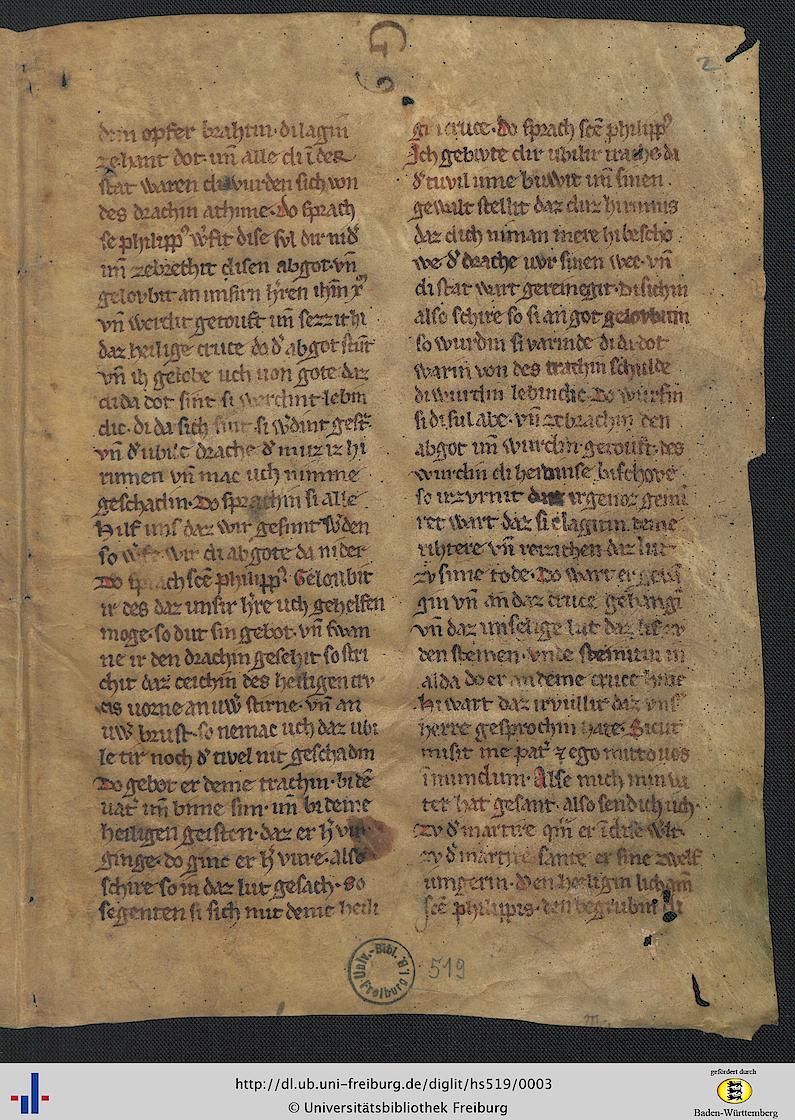 G
2
opfer brahtin· dilagin
zehant dot· un̄ alle di īder
stat waren di wurden sich von
des drachin athime· Do sprach
se philippꝰ w̓fit dise sul dir nid̓
un̄ zebrechit disen abgot· vn̄
geloubit an unsirn h̓ren ihm̄ xp̄
vn̄ werdit getouft un̄ sezzit hi
daz heilige cruce do d̓ abgot stūt
vn̄ ih gelobe uch uon gote daz
di da dot sint· si werdint lebin
dic· di da sich sint· si w̓dint gest̄·
vn̄ d̓ ubile drache d̓ muz iz hi
rumen vn̄ mac uch nimme
geschadin· Do sprachin si alle
Hilf uns daz wir gesunt w̓den
so w̓fe wir di abgote da nider
Do sprach sc̄e philippꝰ· Geloubit
ir des daz unsir h̓re uch gehelfen
moge· so dut sin gebot· vn̄ swan
ne ir den drachin gesehit so stri
chit daz ceichin des heiligen cru
cis uorne an uw̓ stirne· vn̄ an
uw̓ brust· so nemac uch daz ubi
le tir noch d̓ tivel nit geschadin
Do gebot er deme trachin· bi dē
uat̓ un̄ bime sun· un̄ bi deme
heiligen geisten· daz er h̓ vur
ginge· do ginc er h̓ vure· also
schire so in daz lut gesach· so
segenten si sich mit deme heili
gin cruce· Do sprach sc̄e philippꝰ
Ich gebivte dir ubilir trache da
d̓ tuvil ume buwit un̄ sinen
gewalt stellit daz duz hi rumis
daz dich niman mere hi bescho
we d̓ drache uor sinen wec· vn̄
di stat wart gereinegit· Di sichin
also schire so si an got geloubtun
so wurdin si varinde di di dot
warin von des trachin schulde
di wurdin lebindic· Do wurfin
si di sul abe· vn̄ zebrachin den
abgot un̄ wurdin getouft· des
wurdin di heidinise bischove
so irzurnit
ret wart daz si clagitin deme
rihtere vn̄ reizichen daz lut
zu sime tode· Do wart er geuā
gin vn̄ an daz cruce gehangī
vn̄ daz unselige lut daz
den steinen· vnde steinitun in
alda do er an deme cruce hinc
Hi wart daz irvullit daz uns̓
herre gesprochin hate· Sicut
misit me pat̓ ⁊ ego mitto uos
ī mundum· Alse mich min va
ter hat gesant· also send ich uch·
zu d̓ martire
zu d̓ martire sante er sine zwelf
iungerin· Den heiligin lichamī
sc̄e philippis· den begrubin di
Univ.-Bibl. Freiburg i/B
519
http://dl.ub.uni-freiburg.de/diglit/hs519/0003
© Universitätsbibliothek Freiburg
gefördert durch
Baden-Württemberg